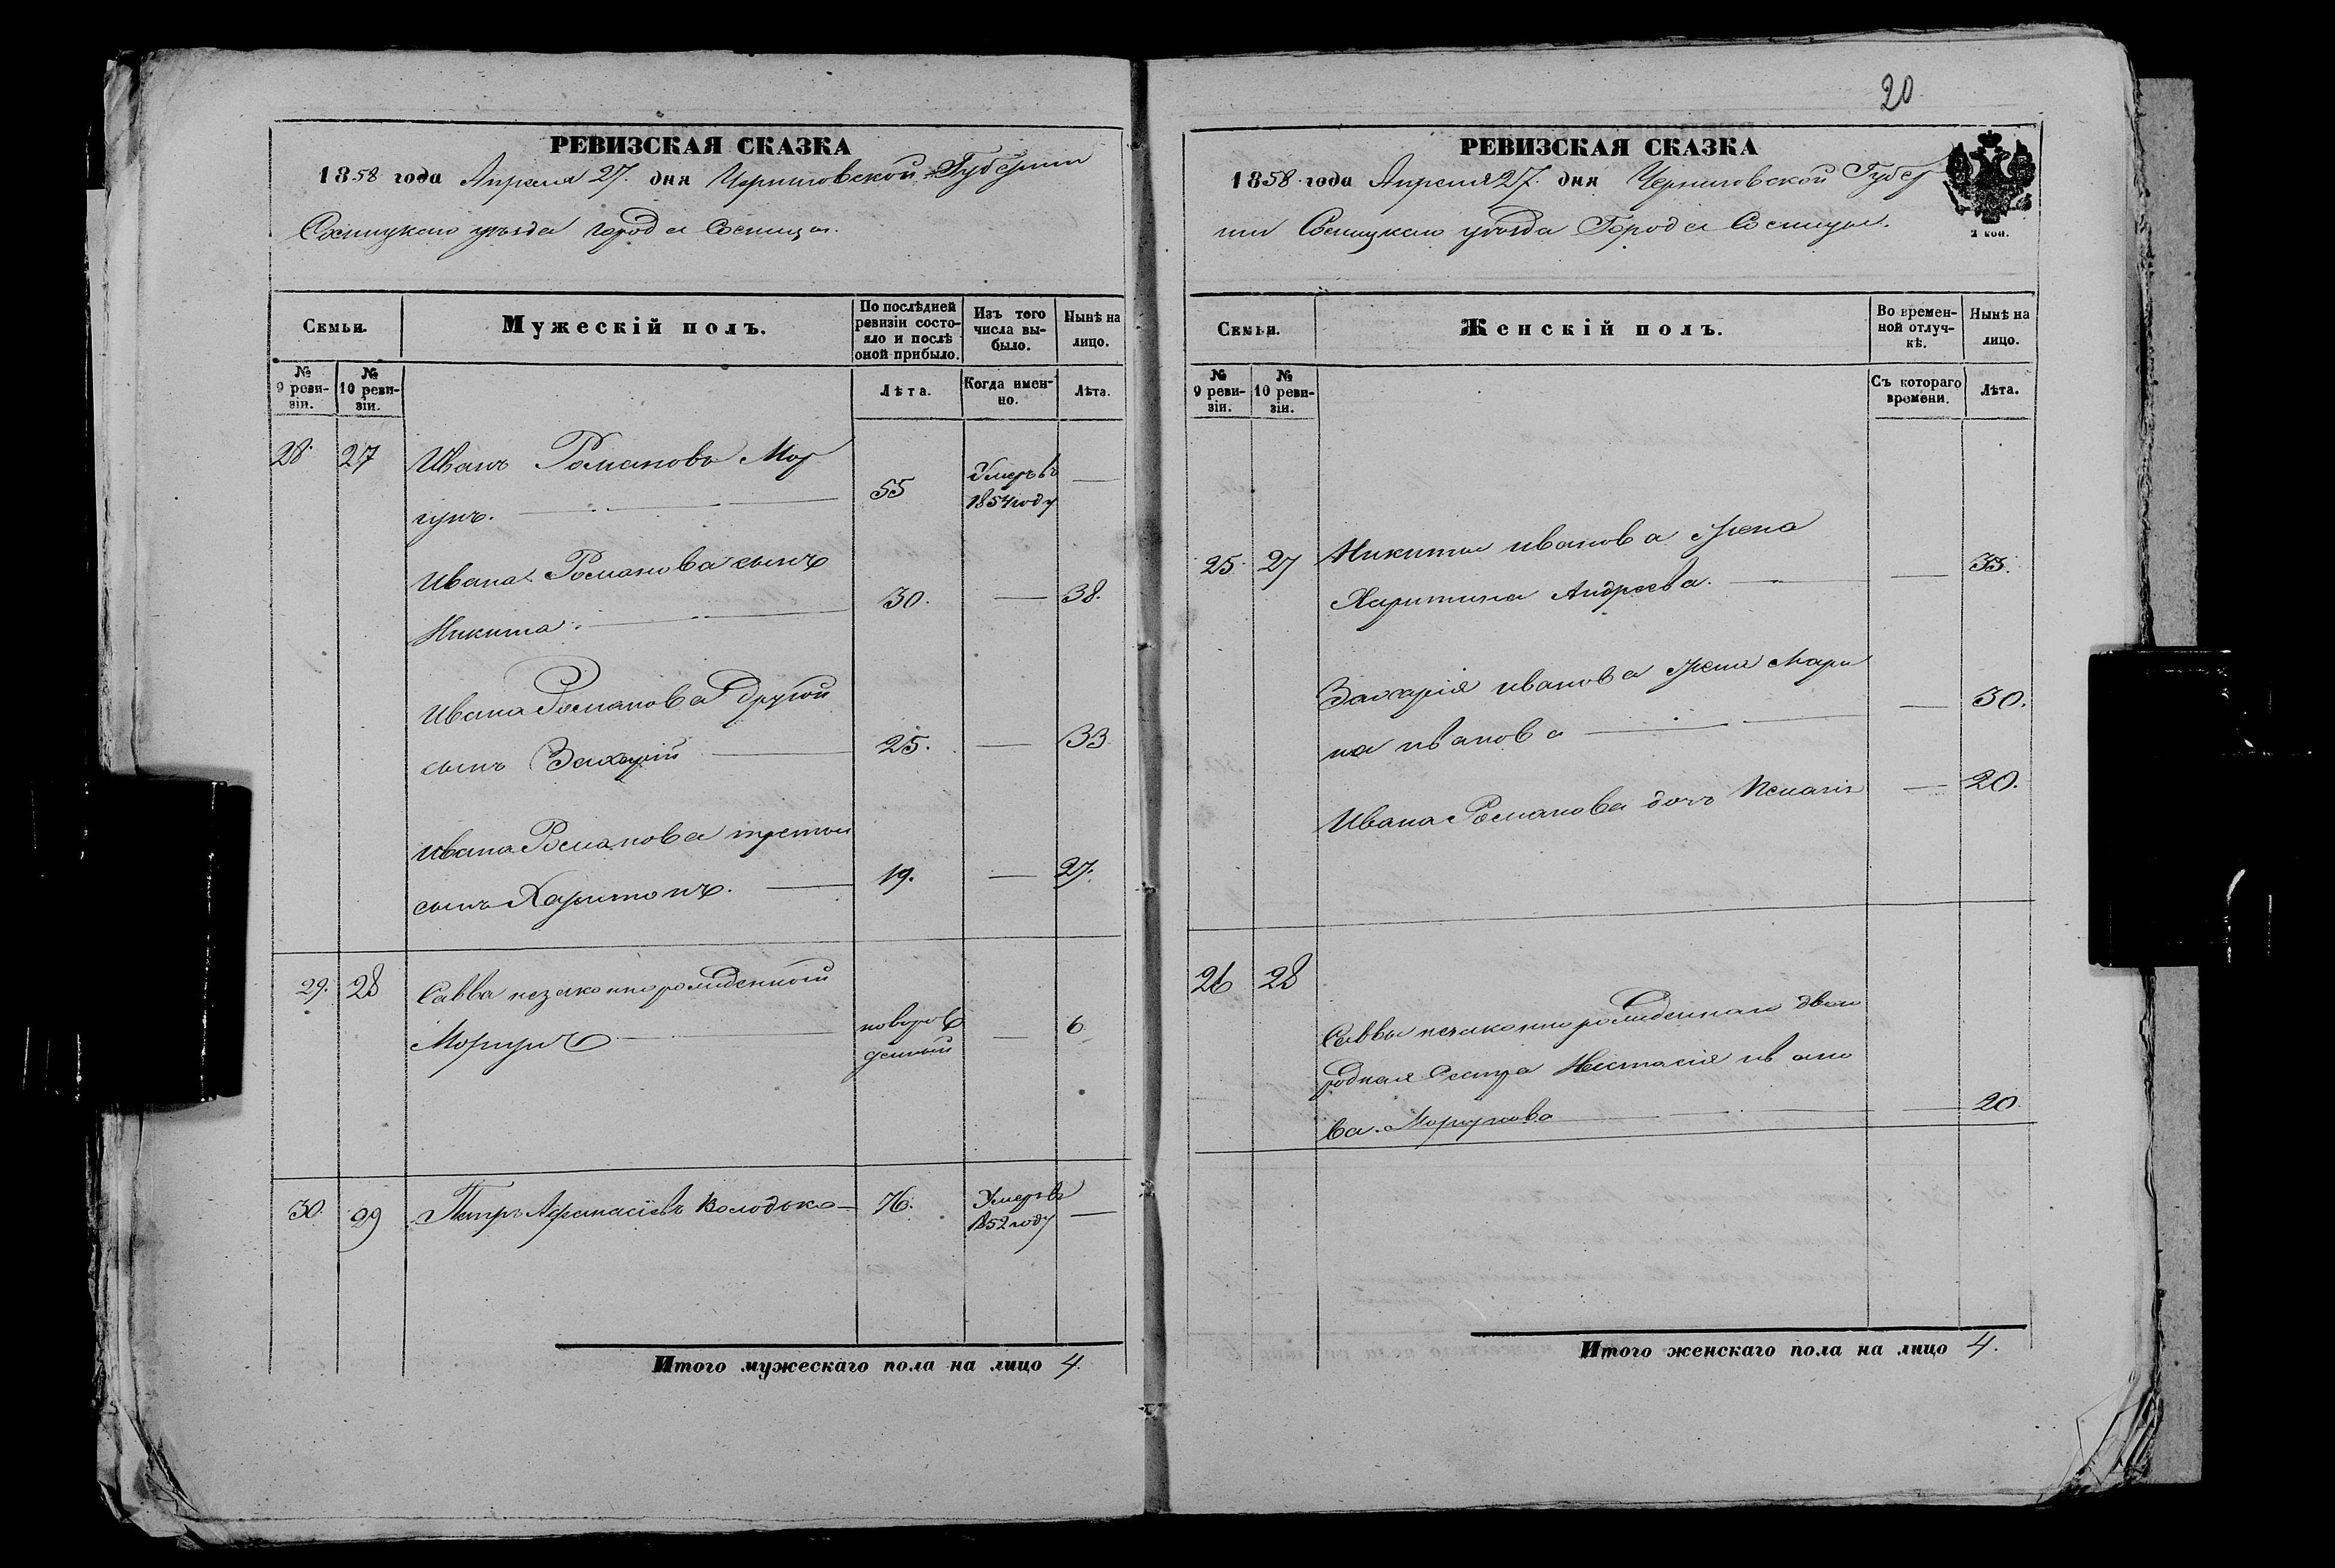 РЕВИЗСКАЯ СКАЗКА
1858 года Апреля 27. дня Черниговской Губернии
Сосницкаго уѣзда города Сосницы.
Семьи.
Мужескій полъ.
По послѣдней ревизіи состояло и послѣ оной прибыло.
Изъ того числа выбыло.
Нынѣ на лицо.
№ 9 ревизіи.
№ 10 ревизіи.
Лѣта.
Когда именно.
Лѣта.
28. 27 Иванъ Романовъ Мор
гунъ. 55 Умеръ въ 1854 году —
Ивана Романова сынъ
Никита. 30. — 38.
Ивана Романова другой
сынъ Захарій 25. — 33
Ивана Романова третий
сынъ Харитонъ. 19. — 27.
29. 28 Савва незаконнорожденный
Моргунъ новорожденный — 6
30. 29 Петръ Афанасіевъ Володько 76. Умеръ въ 1852 году —
Итого мужескаго пола на лицо 4.
20
РЕВИЗСКАЯ СКАЗКА
1858. года Апреля 27. дня Черниговской Губер
нии Сосницкаго уѣзда Города Сосницы.
2 коп.
Семьи.
Женскій полъ.
Во временной отлучкѣ.
Нынѣ на лицо.
№ 9 ревизіи.
№ 10 ревизіи.
Съ котораго времени.
Лѣта.
25. 27 Никиты иванова Жена
Харитина Андреева. — 33.
Захарія иванова Жена Мари
на иванова — 30.
Ивана Романова дочь — 20.
26 28
Саввы незаконнорожденнаго двою
родная Сестра Настасія ивано
ва Моргунова — 20
Итого женскаго пола на лицо 4.